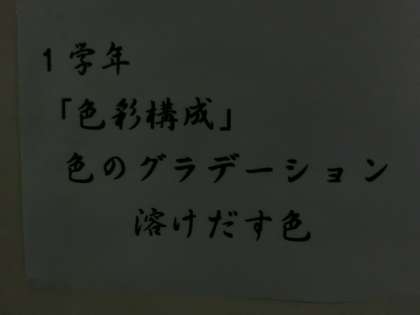 1学年
「色彩構成」
色のグラデーション
溶けだす色